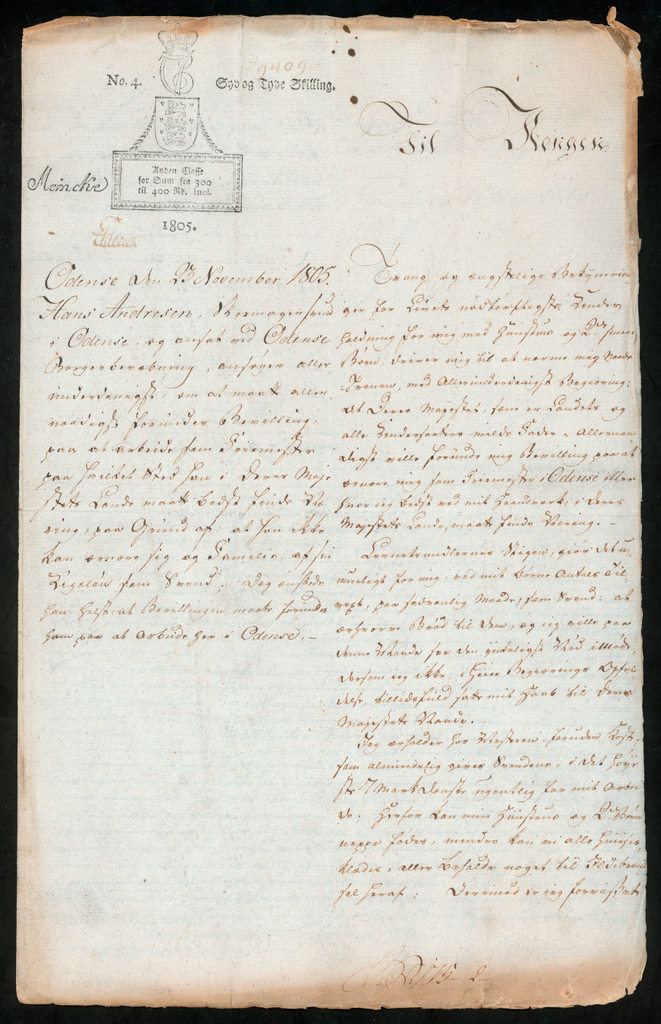 2402
No. 4.
Syv og Tyve Skilling.
Anden Classe
for Sum fra 300
til 400 Rd. incl.
1805.
Meincke
Til Kongen
Odense den 23 November 1805.
Hans Andresen, Skoemagersvend
i Odense, og ansat ved Odense
Borgerbevæbning, ansøger aller
underdanigst: om at maatte aller
naadigst forundes Bevilling
paa at arbeide som Friemester
paa hvilket Sted han i Deres Maje
stæts Lande maatte bedst finde Næ
ring, paa Grund af: at han ikke
kan ernære sig og Familie af sin
Ugeløn som Svend. Dog ønskede
han helst: at Bevillingen maatte forundes
ham paa at Arbeide her i Odense. –
Trang og ængstelige Bekymrin
ger for Livets nødtørftigste Under
holdning for mig med Hustrue og 2de smaae
Børn, driver mig til at nærme mig Naade
Tronen, med Allerunderdanigst Begiering:
At Deres Majestæt, som er Landets og
alle Undersaatters milde Fader, Allernaa
digst ville forunde mig Bevilling paa at
ernære mig som Friemester i Odense eller
hvor jeg bedst ved mit Haandverk, i Deres
Majestæts Lande, maatte finde Næring. –
Levnetsmidlernes Stigen, giør det u
mueligt for mig, ved mit Børne Antals Til
vext, paa sædvanlig Maade, som Svend: at
erhverve Brød til dem, og jeg ville paa
denne Maade see den ynkeligste Nød i møde,
dersom jeg ikke, i Begiærings Opfyl
delse, tillidsfuld satte mit Haab til Deres
Majestæts Naade. –
Jeg erholder hos Mesteren, foruden Kost
som almindelig gives Svendene, i det høye
ste 7 Mark Danske ugentlig for mit Arbei
de. Herfor kan min Hustrue og 2de Børn
neppe fødes, mindre kan vi alle
klædes, eller beholde noget til Ildebrænd
sel heraf: Derimod er jeg forvisset